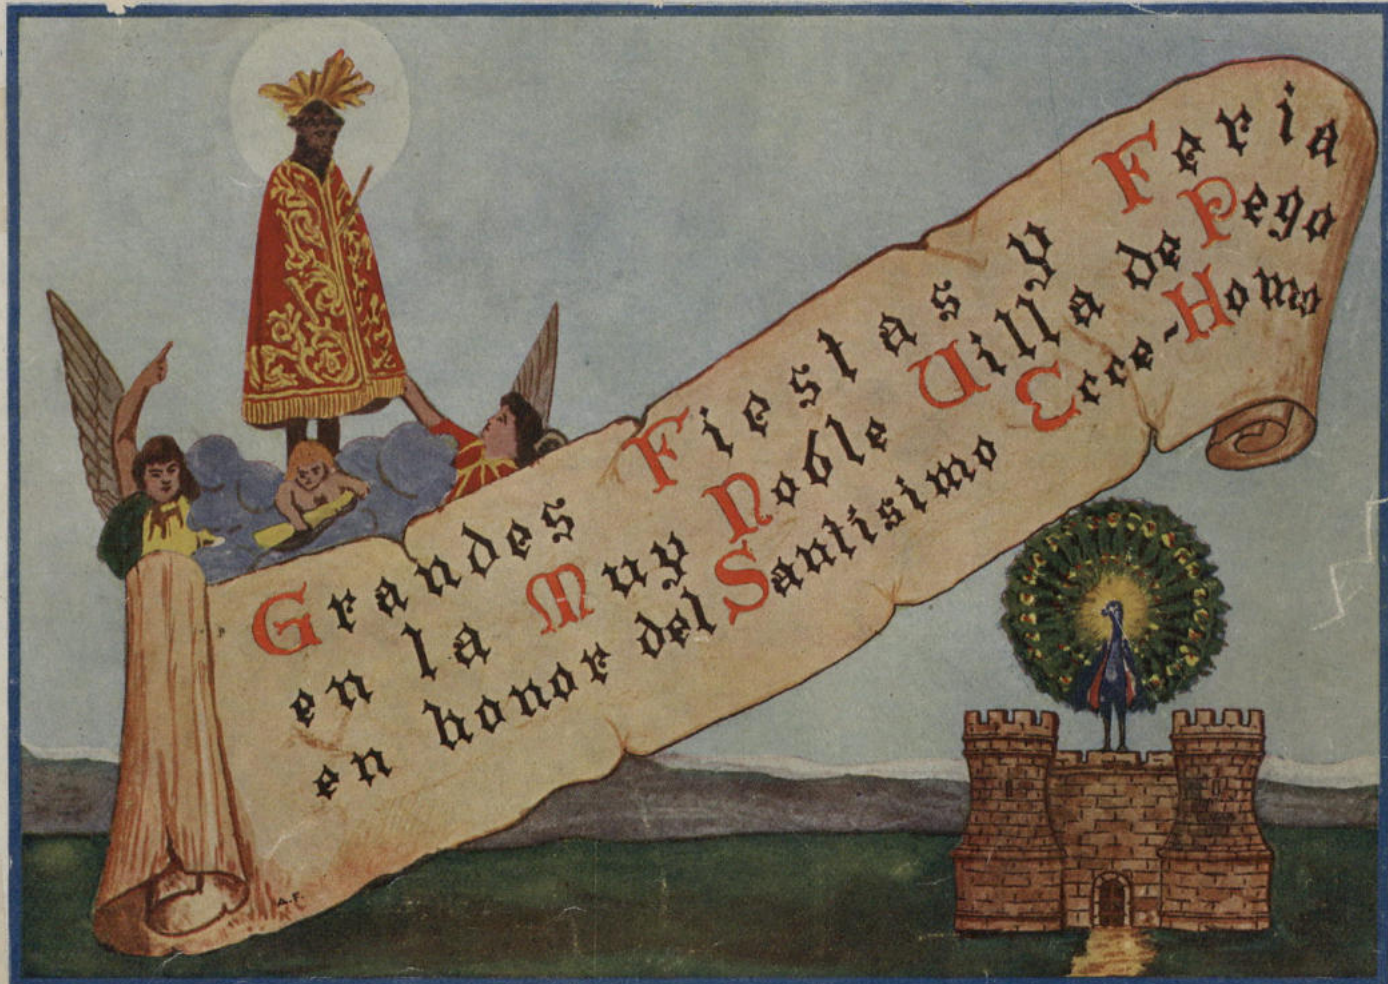 Grandes Fiestas y Feria
en la Muy Noble Villa de Pego
en honor del Santisimo Ecce-Homo
A.F.